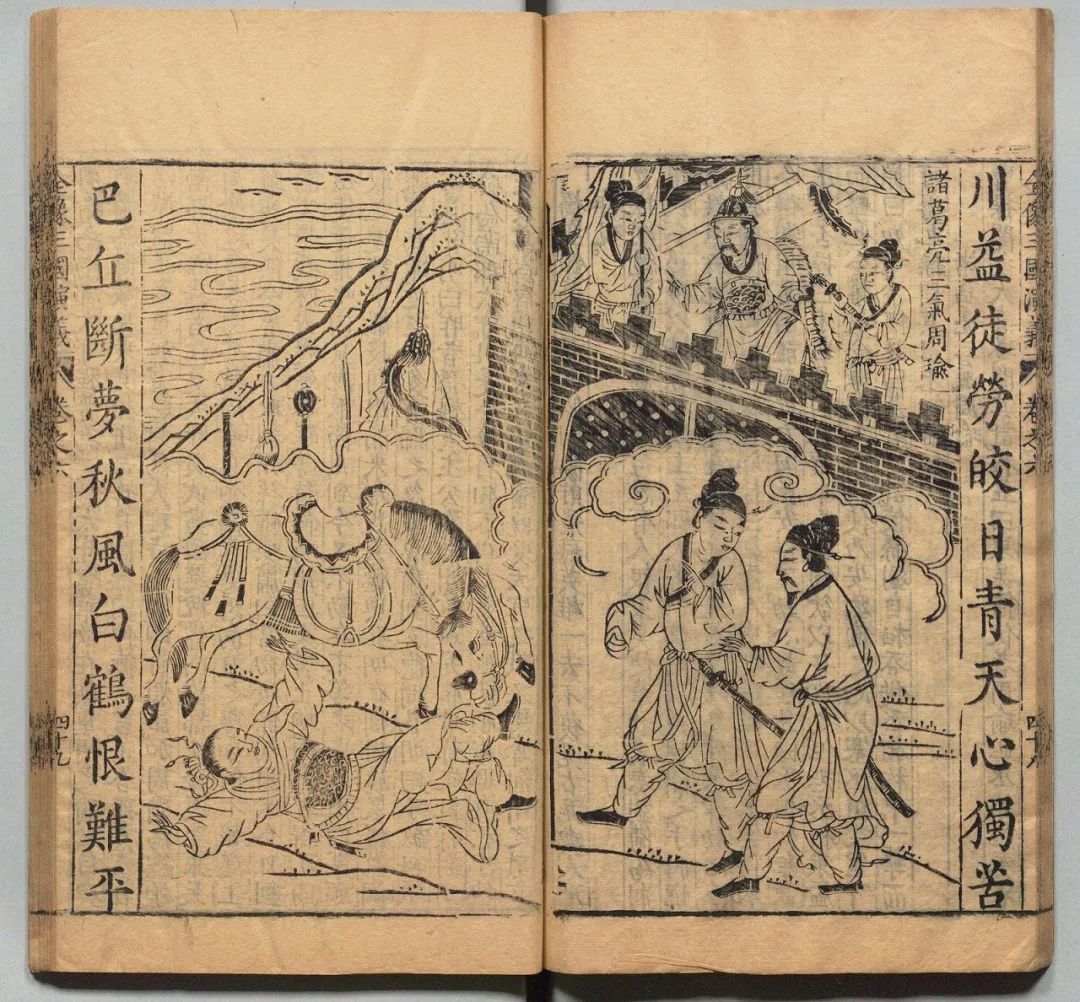 全像三國演義 卷之六
川益徒勞皎日青天心獨苦
諸葛亮三氣周瑜
巴丘斷夢秋風白鶴恨難平
全像三國演義 卷之六
四十九